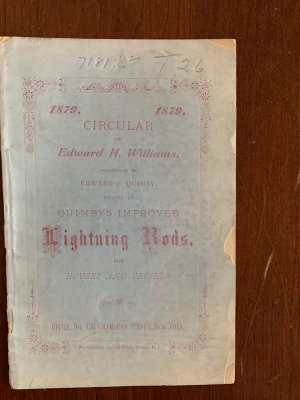 7181½ T 26
1879. 1879.
CIRCULAR
OF
Edward H. Williams,
SUCCESSOR TO
EDWARD P. QUIMBY,
DEALER IN
QUIMBY'S IMPROVED
Lightning Rods,
FOR
HOUSES AND VESSELS.
OFFICE, No. 136 CHAMBERS STREET, NEW YORK.